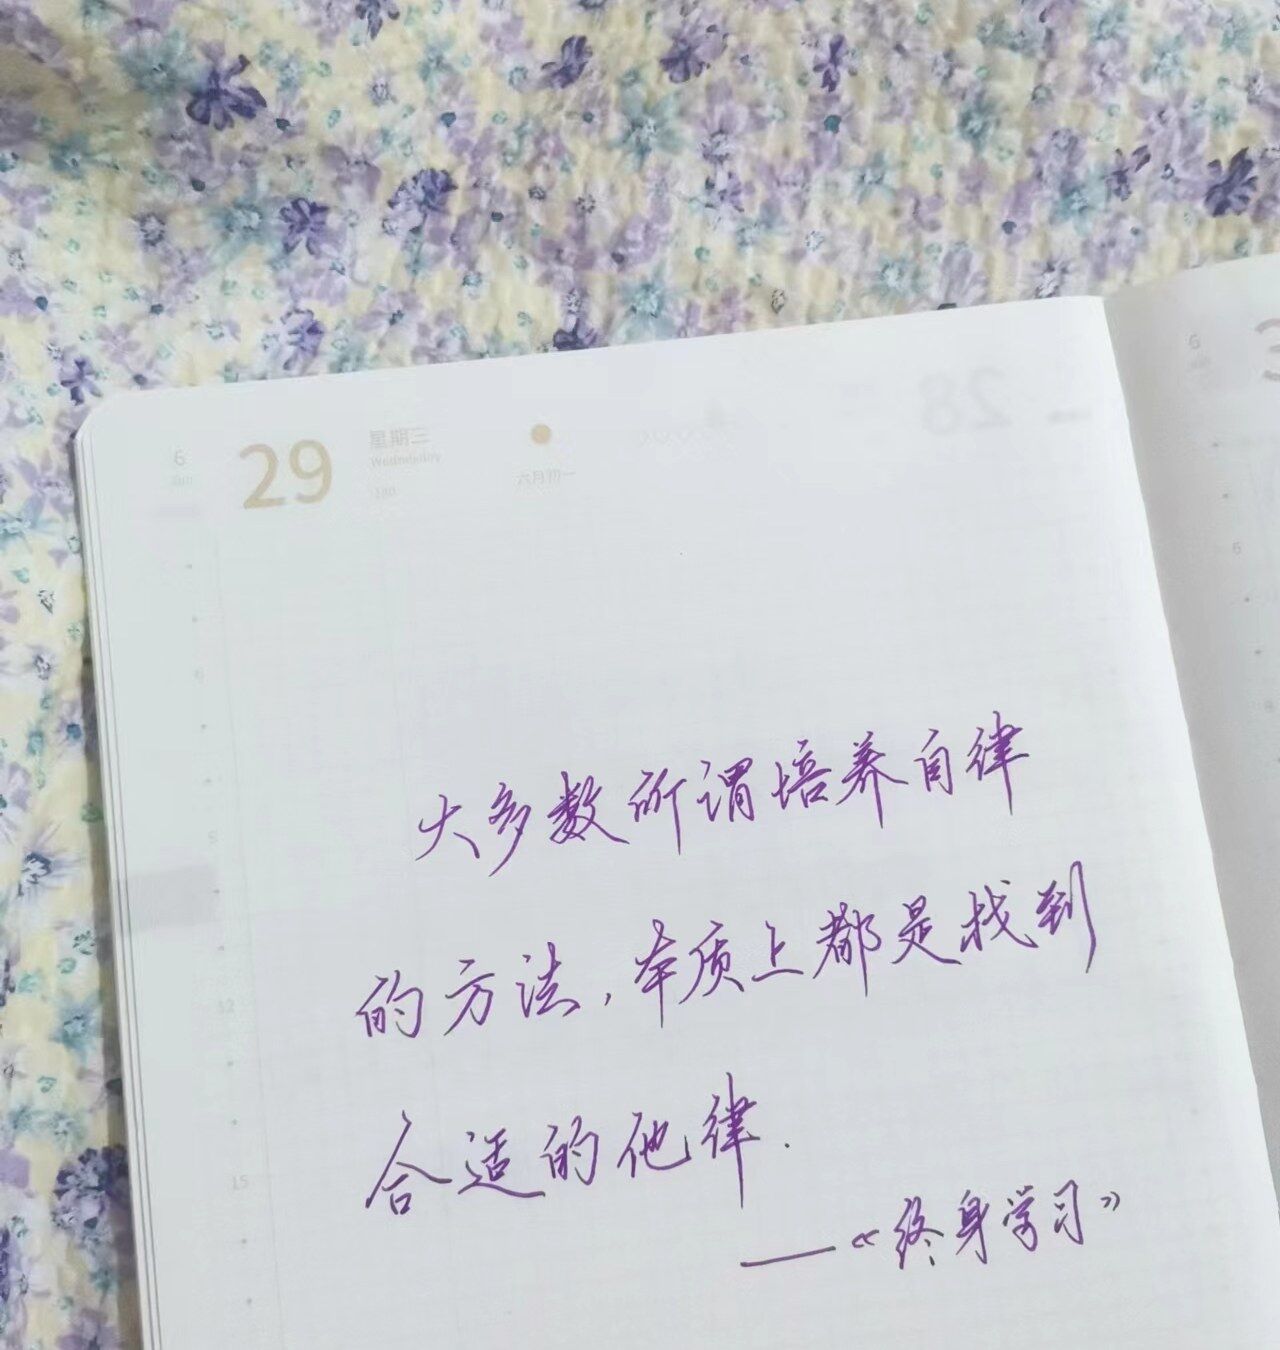 6
Jun
29
星期三
Wednesday
180
六月初一
28
6
6
9
12
15
大多数所谓培养自律
的方法,本质上都是找到
合适的他律.
——《终身学习》